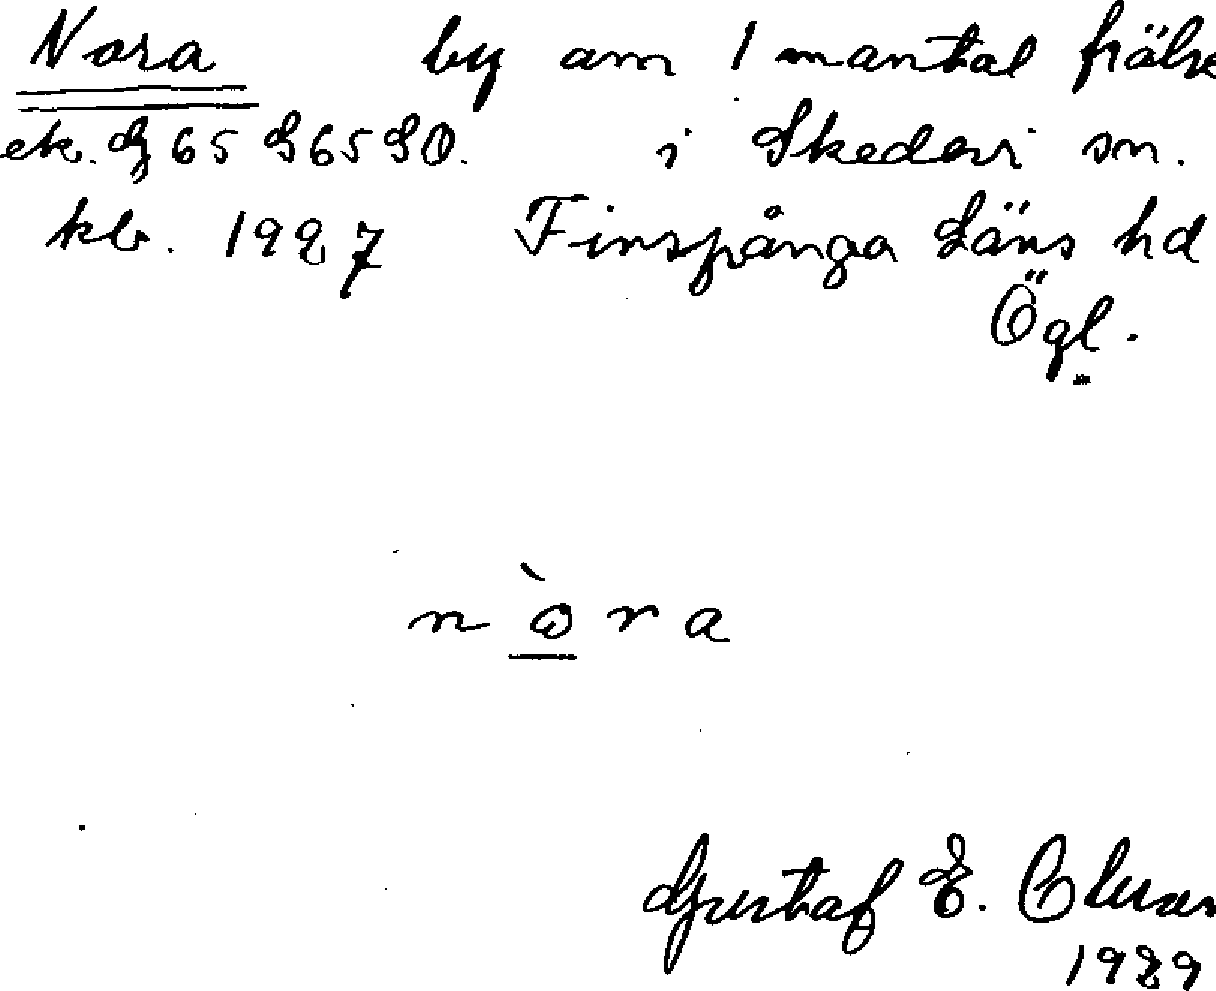 Nora by om 1 mantal frälse
ek. G 65 S65SO. i Skedevi sn.
kb. 1927 Finspånga Läns hd
Ögl.
nòra
Gustaf E.
1929